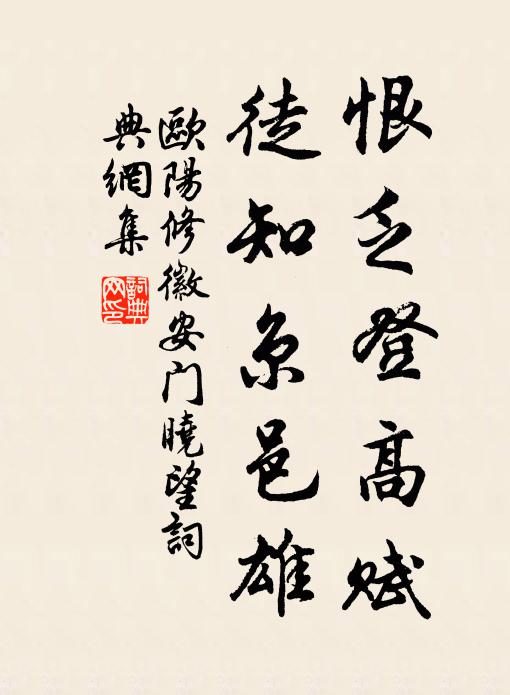 恨乏登高賦
徒知京邑雄
歐陽修徽安门曉望詞
典網集
詞典
网印